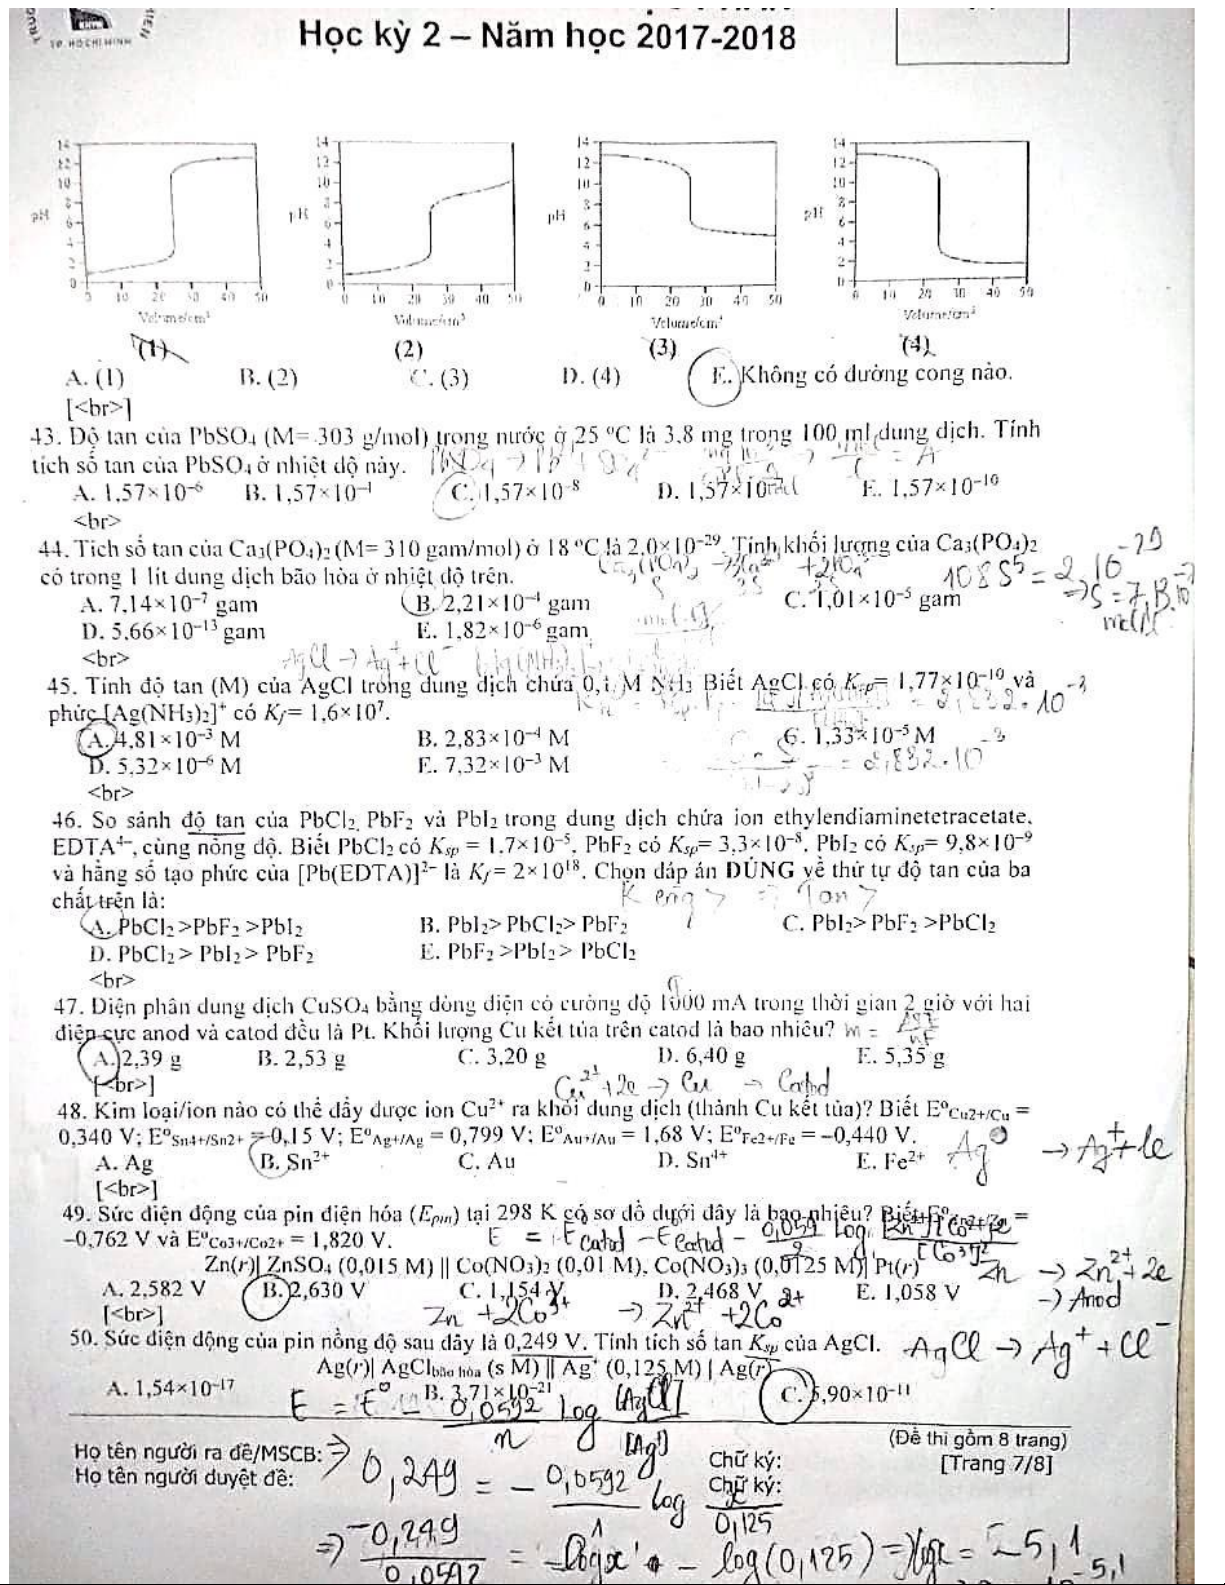 TP. HỒ CHÍ MINH
Học kỳ 2 – Năm học 2017-2018
14 12 10 8 6 4 2 0
pH
0 10 20 30 40 50
Volume/cm³
(1)
14 12 10 8 6 4 2 0
pH
0 10 20 30 40 50
Volume/cm³
(2)
14 12 10 8 6 4 2 0
pH
0 10 20 30 40 50
Volume/cm³
(3)
14 12 10 8 6 4 2 0
pH
0 10 20 30 40 50
Volume/cm³
(4)
A. (1) B. (2) C. (3) D. (4) E. Không có đường cong nào.
[<br>]
43. Độ tan của PbSO₄ (M= 303 g/mol) trong nước ở 25 ⁰C là 3.8 mg trong 100 ml dung dịch. Tính
tích số tan của PbSO₄ ở nhiệt độ này.
A. 1,57×10⁻⁶ B. 1,57×10⁻⁴ C. 1,57×10⁻⁸ D. 1,57×10 E. 1,57×10⁻¹⁰
<br>
44. Tích số tan của Ca₃(PO₄)₂ (M= 310 gam/mol) ở 18 ⁰C là 2,0×10⁻²⁹. Tính khối lượng của Ca₃(PO₄)₂
có trong 1 lít dung dịch bão hòa ở nhiệt độ trên.
108 S⁵ = 2.10⁻²⁹
A. 7,14×10⁻⁷ gam B. 2,21×10⁻⁴ gam C. 1,01×10⁻⁵ gam
⇒ S = 7,13.10⁻⁷
D. 5,66×10⁻¹³ gam E. 1,82×10⁻⁶ gam
<br>
AgCl → Ag⁺ + Cl⁻
45. Tính độ tan (M) của AgCl trong dung dịch chứa 0,1 M NH₃ Biết AgCl có Kₛₚ= 1,77×10⁻¹⁰ và
phức [Ag(NH₃)₂]⁺ có K_f= 1,6×10⁷.
= 2,832.10⁻³
A. 4,81×10⁻³ M B. 2,83×10⁻⁴ M C. 1,33×10⁻⁵ M
D. 5,32×10⁻⁶ M E. 7,32×10⁻³ M
= 2,832.10⁻³
<br>
46. So sánh độ tan của PbCl₂, PbF₂ và PbI₂ trong dung dịch chứa ion ethylendiaminetetracetate,
EDTA⁴⁻, cùng nồng độ. Biết PbCl₂ có Kₛₚ = 1.7×10⁻⁵, PbF₂ có Kₛₚ= 3,3×10⁻⁸, PbI₂ có Kₛₚ= 9,8×10⁻⁹
và hằng số tạo phức của [Pb(EDTA)]²⁻ là K_f = 2×10¹⁸. Chọn đáp án ĐÚNG về thứ tự độ tan của ba
chất trên là:
A. PbCl₂ >PbF₂ >PbI₂ B. PbI₂> PbCl₂> PbF₂ C. PbI₂> PbF₂ >PbCl₂
D. PbCl₂ > PbI₂ > PbF₂ E. PbF₂ >PbI₂> PbCl₂
<br>
47. Điện phân dung dịch CuSO₄ bằng dòng điện có cường độ 1000 mA trong thời gian 2 giờ với hai
điện cực anod và catod đều là Pt. Khối lượng Cu kết tủa trên catod là bao nhiêu? m = AIt/nF
A. 2,39 g B. 2,53 g C. 3,20 g D. 6,40 g E. 5,35 g
[<br>]
Cu²⁺ + 2e → Cu → Catod
48. Kim loại/ion nào có thể đẩy được ion Cu²⁺ ra khỏi dung dịch (thành Cu kết tủa)? Biết E⁰Cu2+/Cu =
0,340 V; E⁰Sn4+/Sn2+ =-0,15 V; E⁰Ag+/Ag = 0,799 V; E⁰Au+/Au = 1,68 V; E⁰Fe2+/Fe = −0,440 V.
A. Ag B. Sn²⁺ C. Au D. Sn⁴⁺ E. Fe²⁺
Ag → Ag⁺ + 1e
[<br>]
49. Sức điện động của pin điện hóa (Eₚᵢₙ) tại 298 K có sơ đồ dưới đây là bao nhiêu? Biết E⁰Zn2+/Zn =
−0,762 V và E⁰Co3+/Co2+ = 1,820 V.
Zn(r)| ZnSO₄ (0,015 M) || Co(NO₃)₂ (0,01 M), Co(NO₃)₃ (0,0125 M)| Pt(r)
Zn → Zn²⁺ + 2e
A. 2,582 V B. 2,630 V C. 1,154 V D. 2,468 V E. 1,058 V
→ Anod
[<br>]
Zn + 2Co³⁺ → Zn²⁺ + 2Co²⁺
50. Sức điện động của pin nồng độ sau đây là 0,249 V. Tính tích số tan Kₛₚ của AgCl.
AgCl → Ag⁺ + Cl⁻
Ag(r)| AgClbão hòa (s M) || Ag⁺ (0,125 M) | Ag(r)
A. 1,54×10⁻¹⁷ B. 3,71×10⁻²¹ C. 5,90×10⁻¹¹
E = E⁰ − 0,0592/n log [AgCl]/[Ag⁺]
(Đề thi gồm 8 trang)
Họ tên người ra đề/MSCB: Chữ ký: [Trang 7/8]
Họ tên người duyệt đề: Chữ ký:
⇒ 0,249 = − 0,0592/1 log x/0,125
⇒ −0,249/0,0592 = log x − log(0,125) ⇒ log x = −5,1